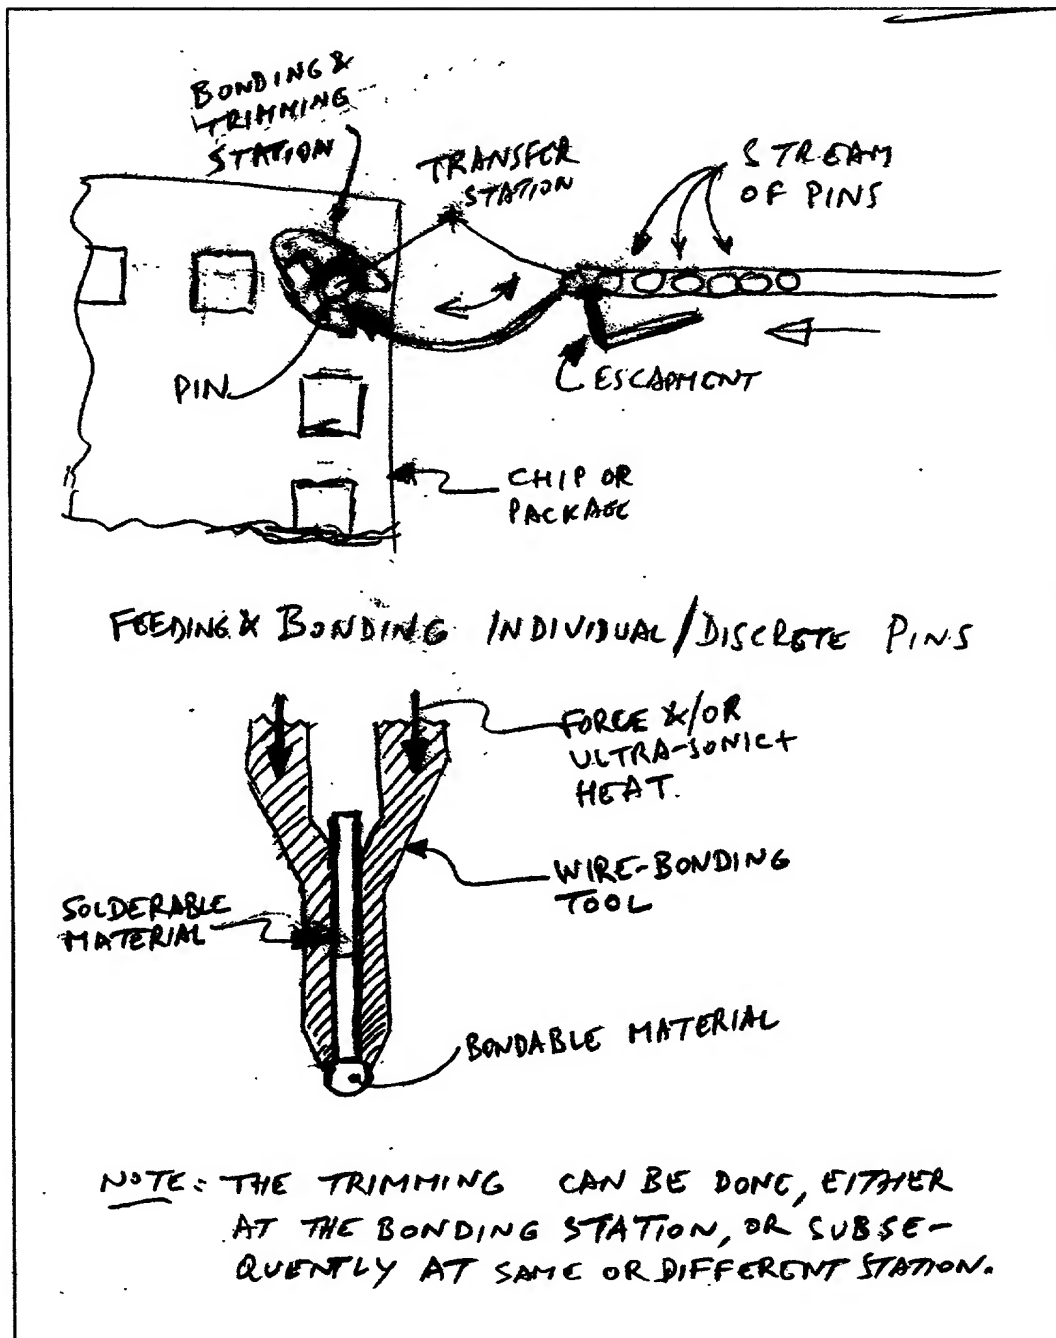 BONDING &
TRIMMING
STATION
TRANSFER
STATION
STREAM
OF PINS
PIN
ESCAPMENT
CHIP OR
PACKAGE
FEEDING & BONDING INDIVIDUAL/DISCRETE PINS
FORCE &/OR
ULTRA-SONIC+
HEAT.
WIRE-BONDING
TOOL
SOLDERABLE
MATERIAL
BONDABLE MATERIAL
NOTE: THE TRIMMING CAN BE DONE, EITHER
AT THE BONDING STATION, OR SUBSE-
QUENTLY AT SAME OR DIFFERENT STATION.